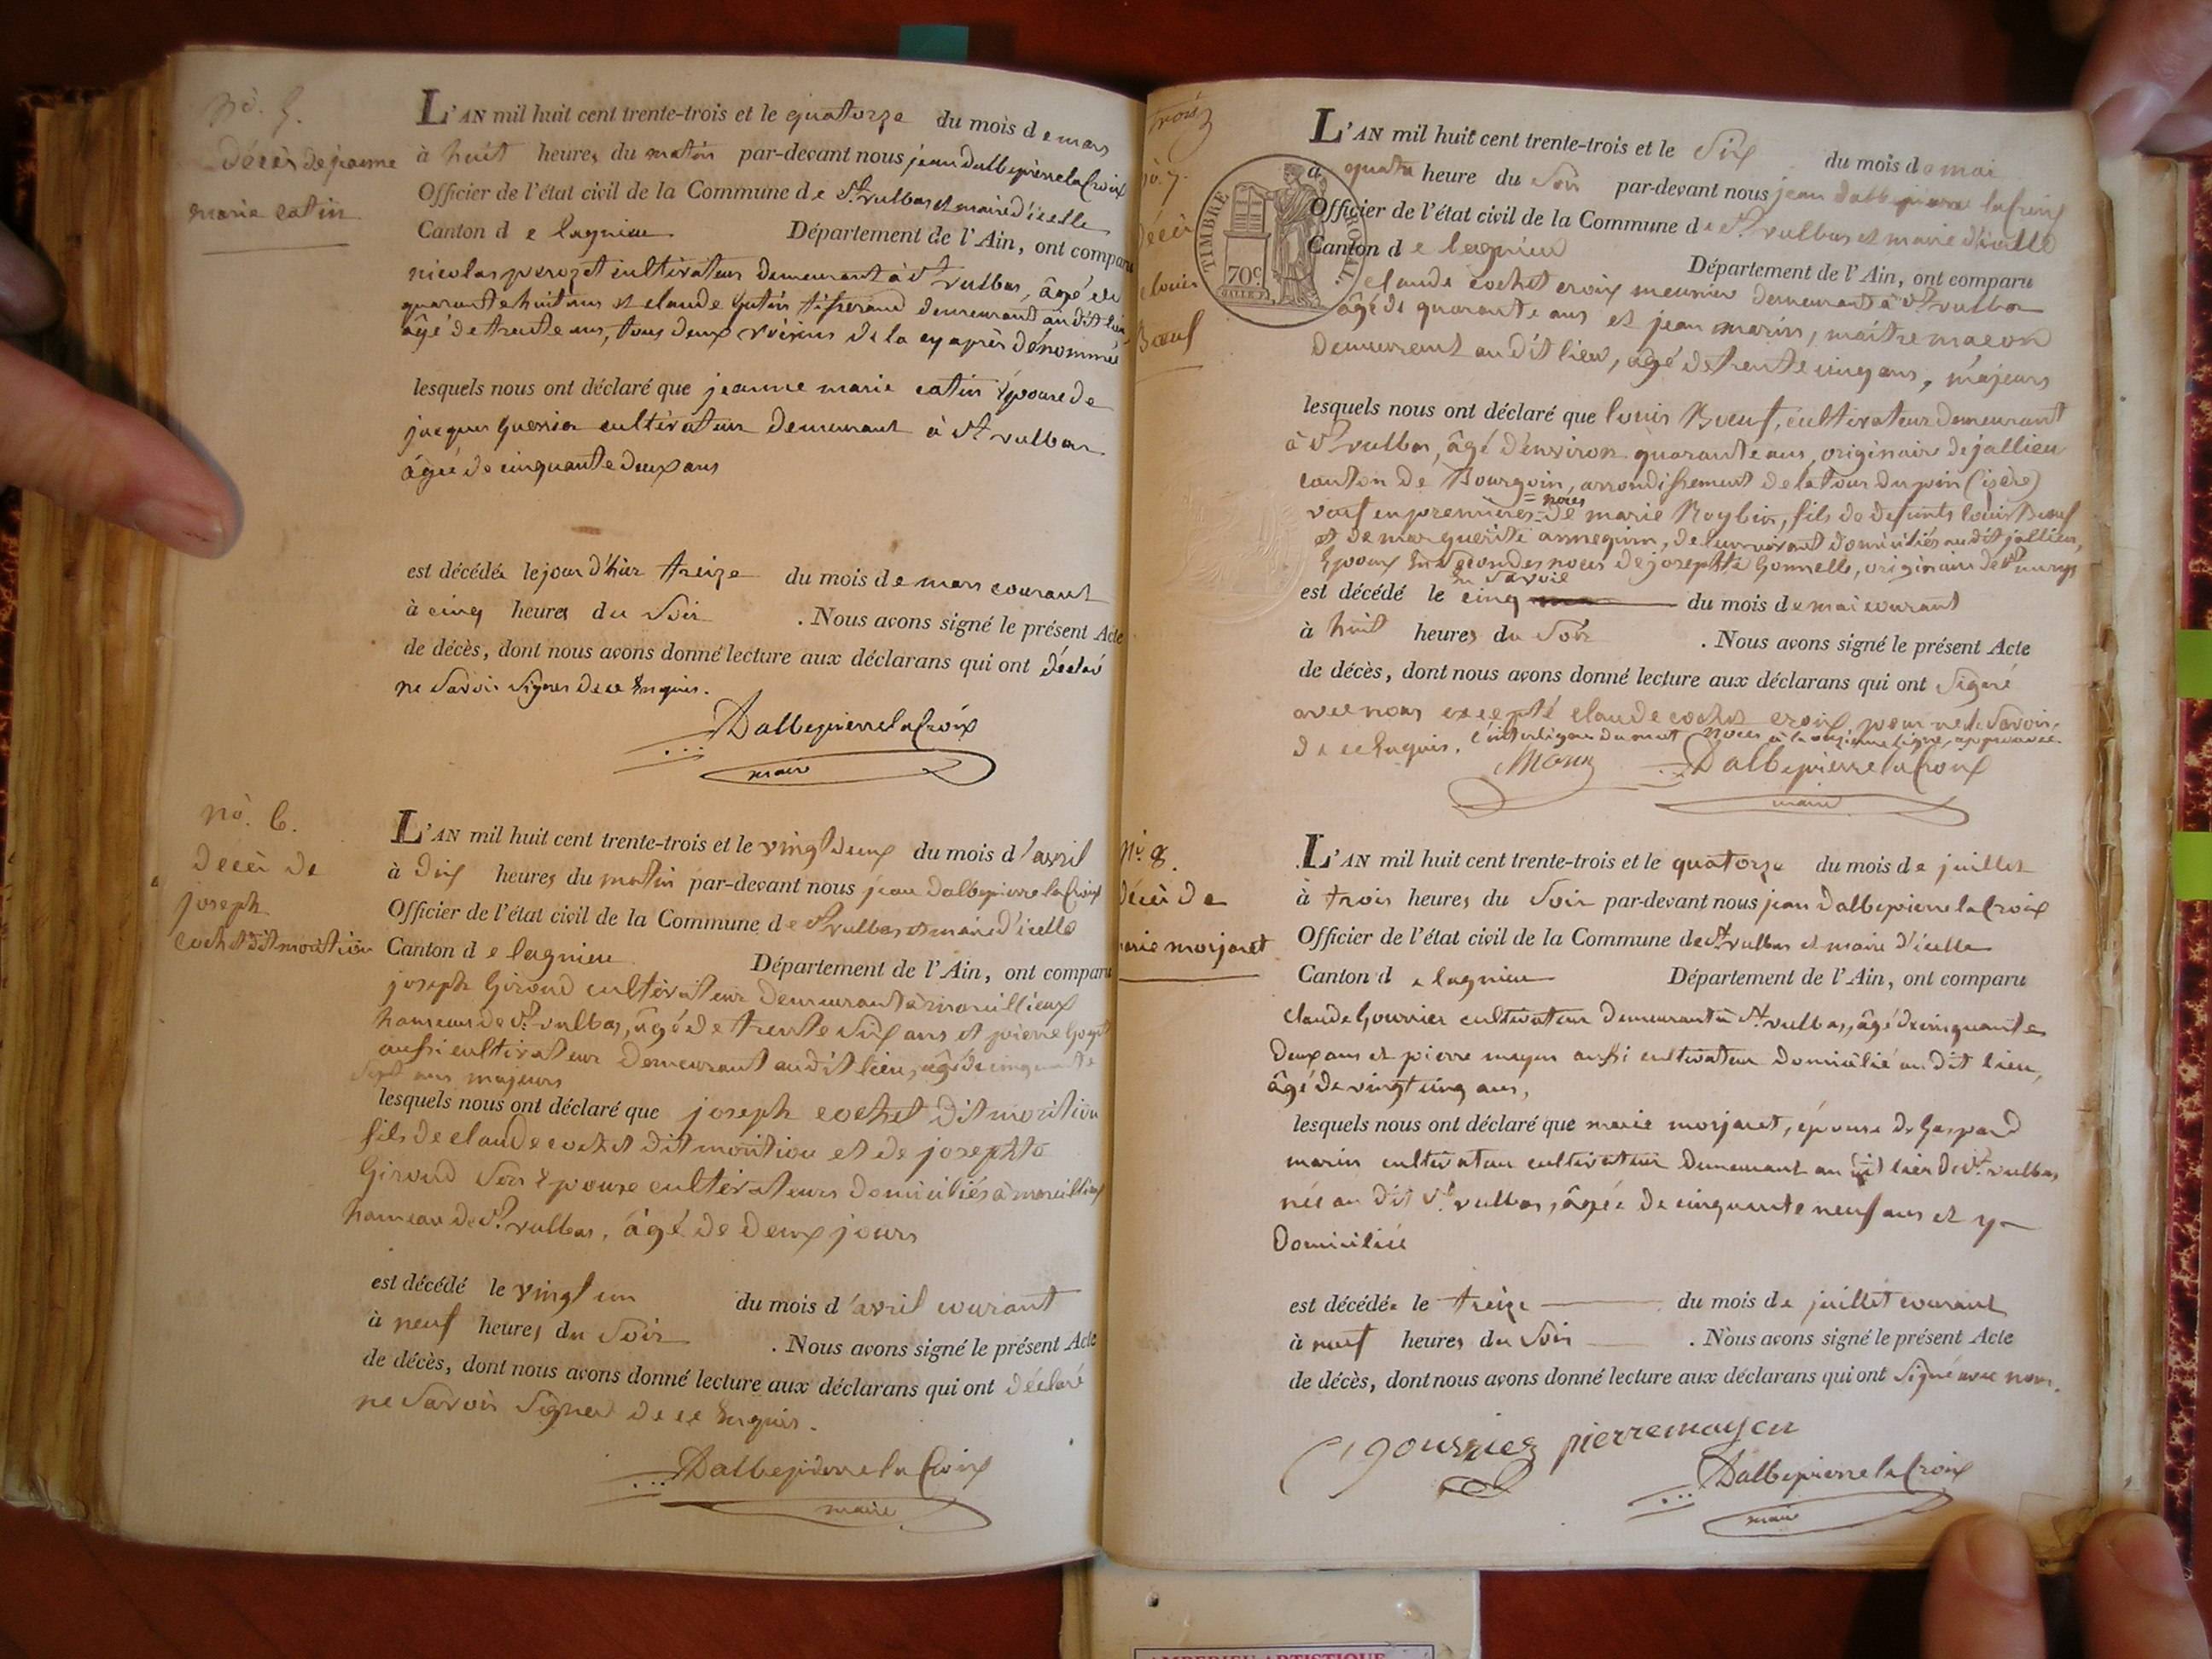 nò. 5.
décès de jeanne
marie catin
L'AN mil huit cent trente-trois et le quatorze du mois de mars
à huit heures du matin par-devant nous jean dalbepierre la Croix
Officier de l'état civil de la Commune de St. vulbas et maire d'icelle
Canton de lagnieu Département de l'Ain, ont comparu
nicolas perozet cultivateur demeurant à St vulbas, âgé de
quarante huit ans et claude tisserand demeurant au dit lieu
âgé de trente ans, tous deux voisins de la cy après dénommée
lesquels nous ont déclaré que jeanne marie catin Épouse de
jacques Guerrier cultivateur demeurant à St vulbas
âgée de cinquante deux ans
est décédée le jour d'hier treize du mois de mars courant
à cinq heures du Soir . Nous avons signé le présent Acte
de décès, dont nous avons donné lecture aux déclarans qui ont déclaré
ne Savoir Signer de ce Enquis.
Dalbepierre la Croix
maire
nò. 6.
décès de
joseph
cochet dit morition
L'AN mil huit cent trente-trois et le vingt deux du mois d'avril
à dix heures du matin par-devant nous jean dalbepierre la Croix
Officier de l'état civil de la Commune de St. vulbas et maire d'icelle
Canton de lagnieu Département de l'Ain, ont comparu
joseph Giroud cultivateur demeurant à marcillieux
hameau de St. vulbas, âgé de trente Six ans et pierre
aussi cultivateur demeurant au dit lieu, âgé de cinquante
Sept ans majeurs
lesquels nous ont déclaré que joseph cochet dit morition
fils de claude cochet dit morition et de josephte
Giroud Son Épouse cultivateurs domiciliés à marcillieux
hameau de St. vulbas, âgé de deux jours
est décédé le vingt un du mois d'avril courant
à neuf heures du Soir . Nous avons signé le présent Acte
de décès, dont nous avons donné lecture aux déclarans qui ont déclaré
ne Savoir Signer de ce Enquis.
Dalbepierre la Croix
maire
trois
nò. 7.
décès
louis
Boeuf
TIMBRE ROYAL
70c
L'AN mil huit cent trente-trois et le Six du mois de mai
à quatre heure du Soir par-devant nous jean dalbepierre la Croix
Officier de l'état civil de la Commune de St. vulbas et maire d'icelle
Canton de lagnieu Département de l'Ain, ont comparu
claude cochet croix meunier demeurant à St vulbas
âgé de quarante ans et jean marin, maître macon
demeurant au dit lieu, âgé de trente cinq ans, majeurs
lesquels nous ont déclaré que louis Boeuf, cultivateur demeurant
à St vulbas, âgé d'environ quarante ans, originaire de jallieu
canton de Bourgoin, arrondissement de la tour du pin (isère)
= noces
veuf en premières = de marie Roybin, fils de defunts louis Boeuf
et de marguerite annequin, de leur vivant domiciliés au dit jallieu,
Epoux En Secondes noces de josephte Gonnelle, originaire de St
En Savoie
est décédé le cinq du mois de mai courant
à huit heures du Soir . Nous avons signé le présent Acte
de décès, dont nous avons donné lecture aux déclarans qui ont Signé
avec nous excepté claude cochet croix pour ne le Savoir
de ce Enquis. l'interligne du mot noces à la ligne, approuvée
Marin Dalbepierre la Croix
maire
nò. 8.
décès de
marie morjaret
L'AN mil huit cent trente-trois et le quatorze du mois de juillet
à trois heures du Soir par-devant nous jean dalbepierre la Croix
Officier de l'état civil de la Commune de St. vulbas et maire d'icelle
Canton de lagnieu Département de l'Ain, ont comparu
claude Gourrier cultivateur demeurant à St. vulbas, âgé de cinquante
deux ans et pierre mayen aussi cultivateur domicilié au dit lieu,
âgé de vingt cinq ans,
lesquels nous ont déclaré que marie morjaret, épouse de Gaspard
marin cultivateur cultivateur demeurant au dit lieu de St. vulbas
née au dit St. vulbas, âgée de cinquante neuf ans et y
domiciliée
est décédée le treize du mois de juillet courant
à neuf heures du Soir . Nous avons signé le présent Acte
de décès, dont nous avons donné lecture aux déclarans qui ont Signé avec nous.
pierre mayen
Dalbepierre la Croix
maire
AMBERIEU ARTISTIQUE